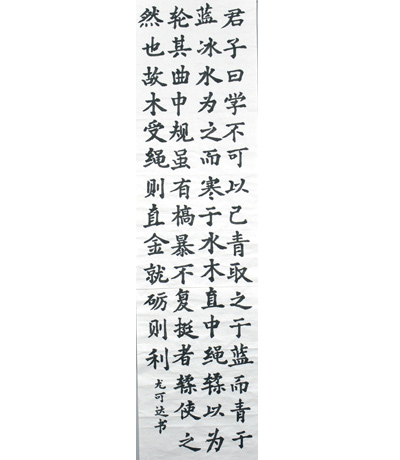 君子曰学不可以已青取之于蓝而青于
蓝冰水为之而寒于水木直中绳𫐓以为
轮其曲中规虽有槁暴不复挺者𫐓使之
然也故木受绳则直金就砺则利
尤可达书